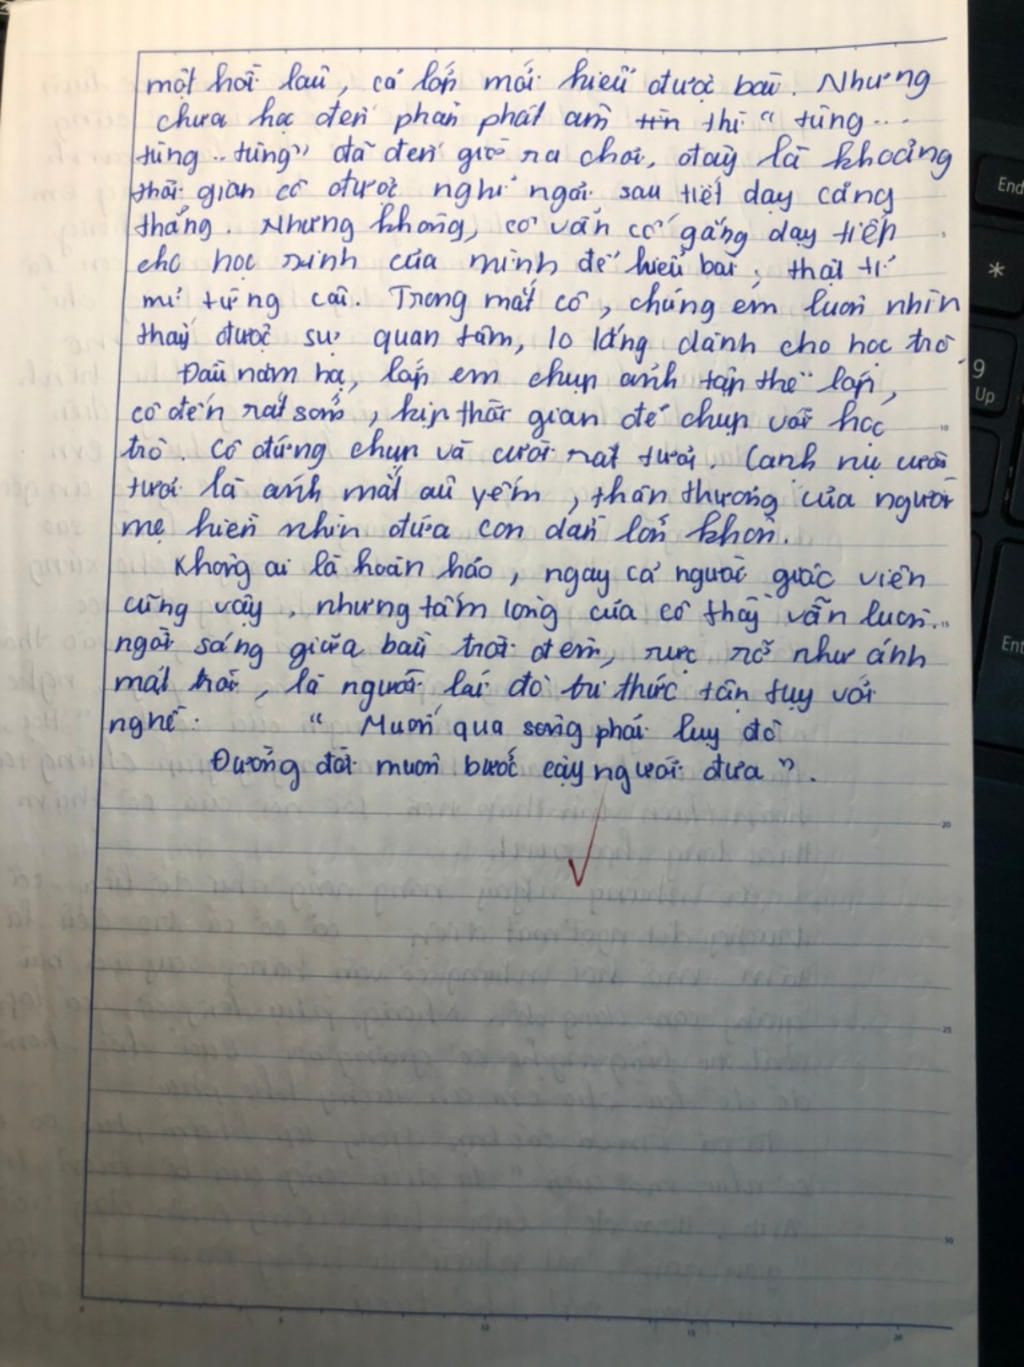 một hồi lâu, cả lớp mới hiểu được bài. Nhưng
chưa học đến phần phát âm thì “ tùng...
tùng.. tùng” đã đến giờ ra chơi, đây là khoảng
thời gian cô được nghỉ ngơi sau tiết dạy căng
thẳng. Nhưng không, cô vẫn cố gắng dạy tiếp
cho học sinh của mình để hiểu bài, thật tỉ
mỉ từng cái. Trong mắt cô, chúng em luôn nhìn
thấy được sự quan tâm, lo lắng dành cho học trò.
Đầu năm học, lớp em chụp ảnh tập thể lớp,
cô đến rất sớm, kịp thời gian để chụp với học
trò. Cô đứng chụp và cười rất tươi. Cạnh nụ cười
tươi là ánh mắt âu yếm, thân thương của người
mẹ hiền nhìn đứa con dần lớn khôn.
Không ai là hoàn hảo, ngay cả người giáo viên
cũng vậy, nhưng tấm lòng của cô thầy vẫn luôn..
ngời sáng giữa bầu trời đêm, rực rỡ như ánh
mặt trời, là người lái đò tri thức tận tụy với
nghề: “ Muốn qua sông phải lụy đò
Đường đời muôn bước cậy người đưa”.
End
*
9
Up
Ent
10
20
25
30